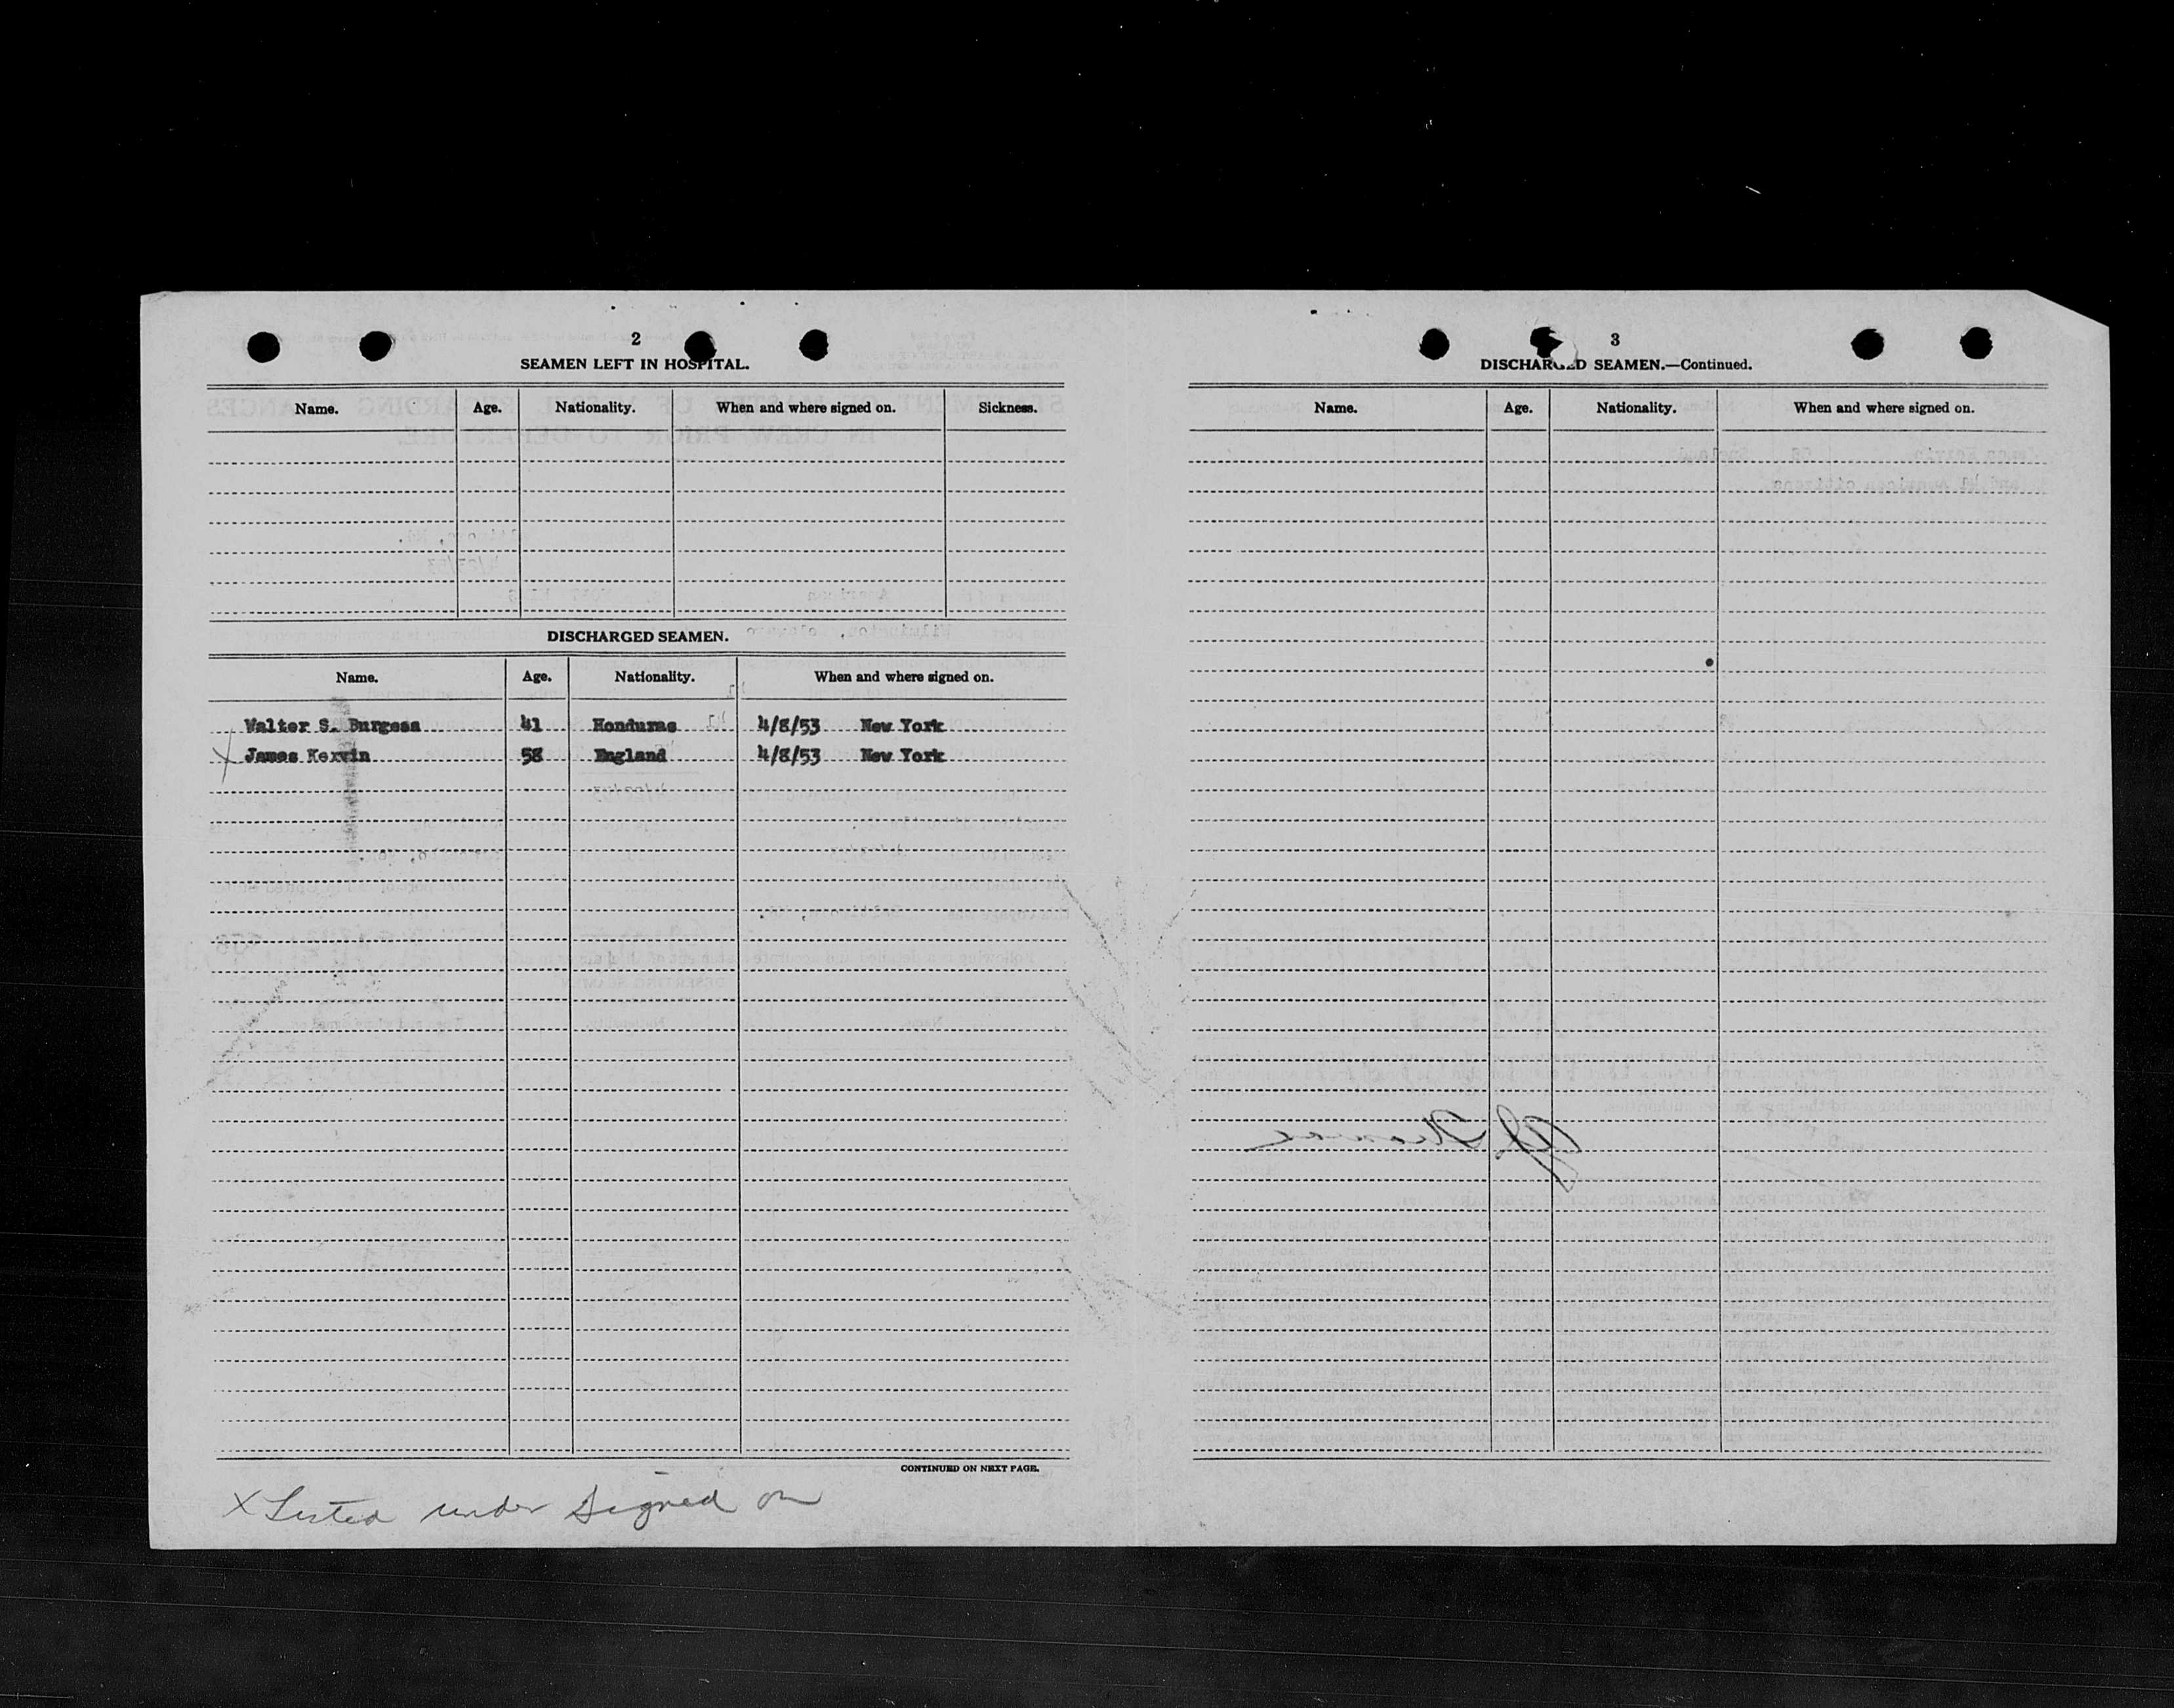 2
SEAMEN LEFT IN HOSPITAL.
Name. Age. Nationality. When and where signed on. Sickness.
DISCHARGED SEAMEN.
Name. Age. Nationality. When and where signed on.
Walter S. Burgess 41 Honduras 4/8/53 New York
X James Kervin 58 England 4/8/53 New York
CONTINUED ON NEXT PAGE.
X Listed under Signed on
3
DISCHARGED SEAMEN.—Continued.
Name. Age. Nationality. When and where signed on.